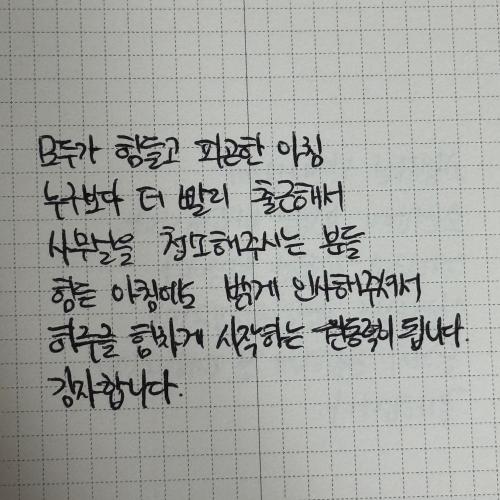 모두가 힘들고 피곤한 아침
누구보다 더 빨리 출근해서
사무실을 청소해주시는 분들
힘든 아침에도 밝게 인사해주셔서
하루를 힘차게 시작하는 원동력이 됩니다.
감사합니다.